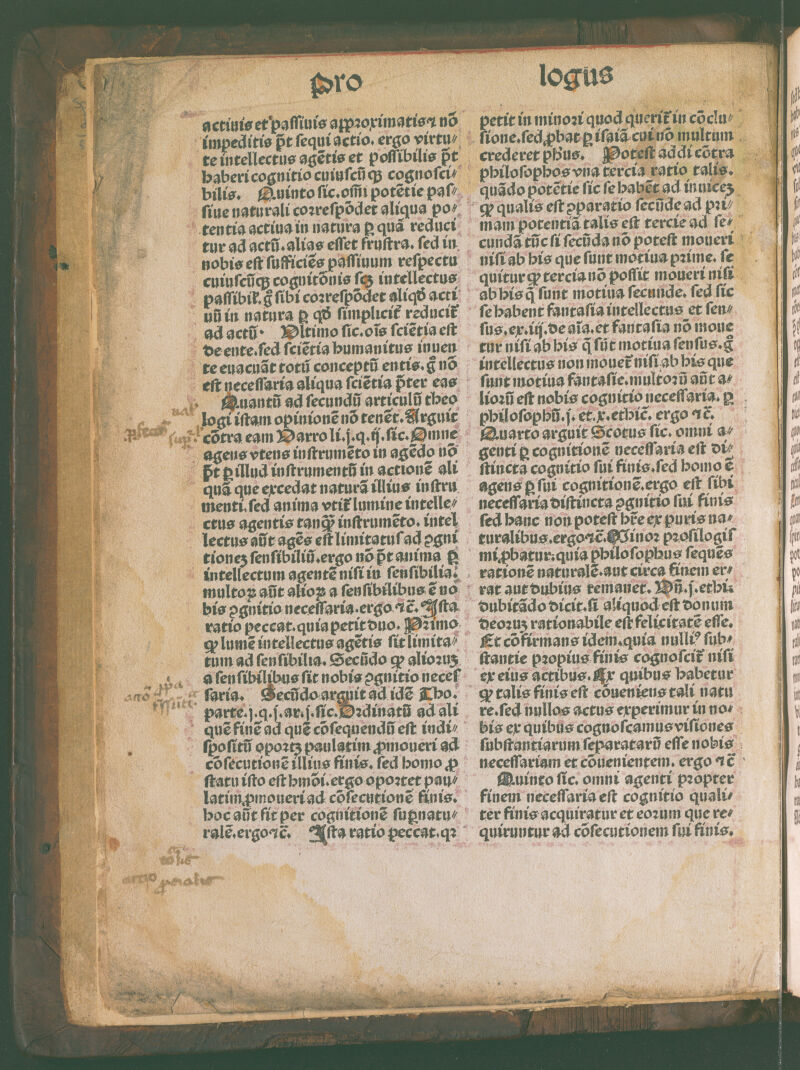 Pro
logus
actiuis et passiuis approximatis ⁊ nō
impeditis p̄t sequi actio. ergo virtu⸗
te intellectus agētis et possibilis p̄t
haberi cognitio cuiuscūqꝫ cognosci⸗
bilis. Quinto sic. oīni potētie pas⸗
siue naturali correspōdet aliqua po⸗
tentia actiua in natura ꝑ quā reduci
tur ad actū. alias esset frustra. sed in
nobis est sufficiēs passiuum respectu
cuiuscūqꝫ cognitōnis sꝫ intellectus
passibiľ. gͦ sibi correspōdet aliqď acti
uū in natura ꝑ qď simpliciť reduciť
ad actū. Vltimo sic. oīs sciētia est
de ente. sed sciētia humanitus inuen
te euacuāt totū conceptū entis. gͦ nō
est necessaria aliqua sciētia p̄ter eas
Quantū ad secundū articulū theo
logi istam opinionē nō tenēt. Arguit
cōtra eam Varro li. j. q. ij. sic. Omne
agens vtens instrumēto in agēdo nō
p̄t ꝑ illud instrumentū in actionē ali
quā que excedat naturā illius instru
menti. sed anima vtiť lumine intelle⸗
ctus agentis tanqͣꝫ instrumēto. intel
lectus aūt agēs est limitatus ad ꝯgni
tionez sensibiliū. ergo nō p̄t anima ꝑ
intellectum agentē nisi in sensibilia.
multoꝝ aūt alioꝝ a sensibilibus ē no
bis ꝯgnitio necessaria. ergo ⁊c̄. Ista
ratio peccat. quia petit duo. Primo
ꝙ lumē intellectus agētis sit limita⸗
tum ad sensibilia. Secūdo ꝙ alioruꝫ
a sensibilibus sit nobis ꝯgnitio neces
saria. Secūdo arguit ad idē Tho.
parte. j. q. j. ar. j. sic. Ordinatū ad ali
quē finē ad quē cōsequendū est indi⸗
spositū oportꝫ paulatim ꝓmoueri ad
cōsecutionē illius finis. sed homo ꝓ
statu isto est hmōi. ergo oportet pau⸗
latim ꝓmoueri ad cōsecutionē finis.
hoc aūt fit per cognitionē suꝑnatu⸗
ralē. ergo ⁊c̄. Ista ratio peccat. qꝛ
petit in minori quod queriť in cōclu⸗
sione. sed ꝓbat ꝑ isaiā cui nō multum
crederet ph̄us. Potest addi cōtra
philosophos vna tercia ratio talis.
quādo potētie sic se habēt ad inuiceꝫ
ꝙ qualis est ꝯparatio secūde ad pri⸗
mam potentiā talis est tercie ad se⸗
cundā tūc si secūda nō potest moueri
nisi ab his que sunt motiua prime. se
quitur ꝙ tercia nō possit moueri nisi
ab his q̄ sunt motiua secunde. sed sic
se habent fantasia intellectus et sen⸗
sus. ex. iij. de aīa. et fantasia nō moue
tur nisi ab his q̄ sūt motiua sensus. gͦ
intellectus non moueť nisi ab his que
sunt motiua fantasie. multorū aūt a⸗
liorū est nobis cognitio necessaria. ꝑ
philosophū. j. et. x. ethic̄. ergo ⁊c̄.
Quarto arguit Scotus sic. omni a⸗
genti ꝑ cognitionē necessaria est di⸗
stincta cognitio sui finis. sed homo ē
agens ꝑ sui cognitionē. ergo est sibi
necessaria distincta ꝯgnitio sui finis
sed hanc non potest hr̄e ex puris na⸗
turalibus. ergo ⁊c̄. Minor prosilogis
mi ꝓbatur. quia philosophus sequēs
rationē naturalē. aut circa finem er⸗
rat aut dubius remanet. Vn̄. j. ethi.
dubitādo dicit. si aliquod est donum
deoruꝫ rationabile est felicitatē esse.
Et cōfirmans idem. quia nulliꝰ sub⸗
stantie propius finis cognosciť nisi
ex eius actibus. Ex quibus habetur
ꝙ talis finis est cōueniens tali natu
re. sed nullos actus experimur in no⸗
bis ex quibus cognoscamus visiones
substantiarum separatarū esse nobis
necessariam et cōuenientem. ergo ⁊c̄
Quinto sic. omni agenti propter
finem necessaria est cognitio quali⸗
ter finis acquiratur et eorum que re⸗
quiruntur ad cōsecutionem sui finis.